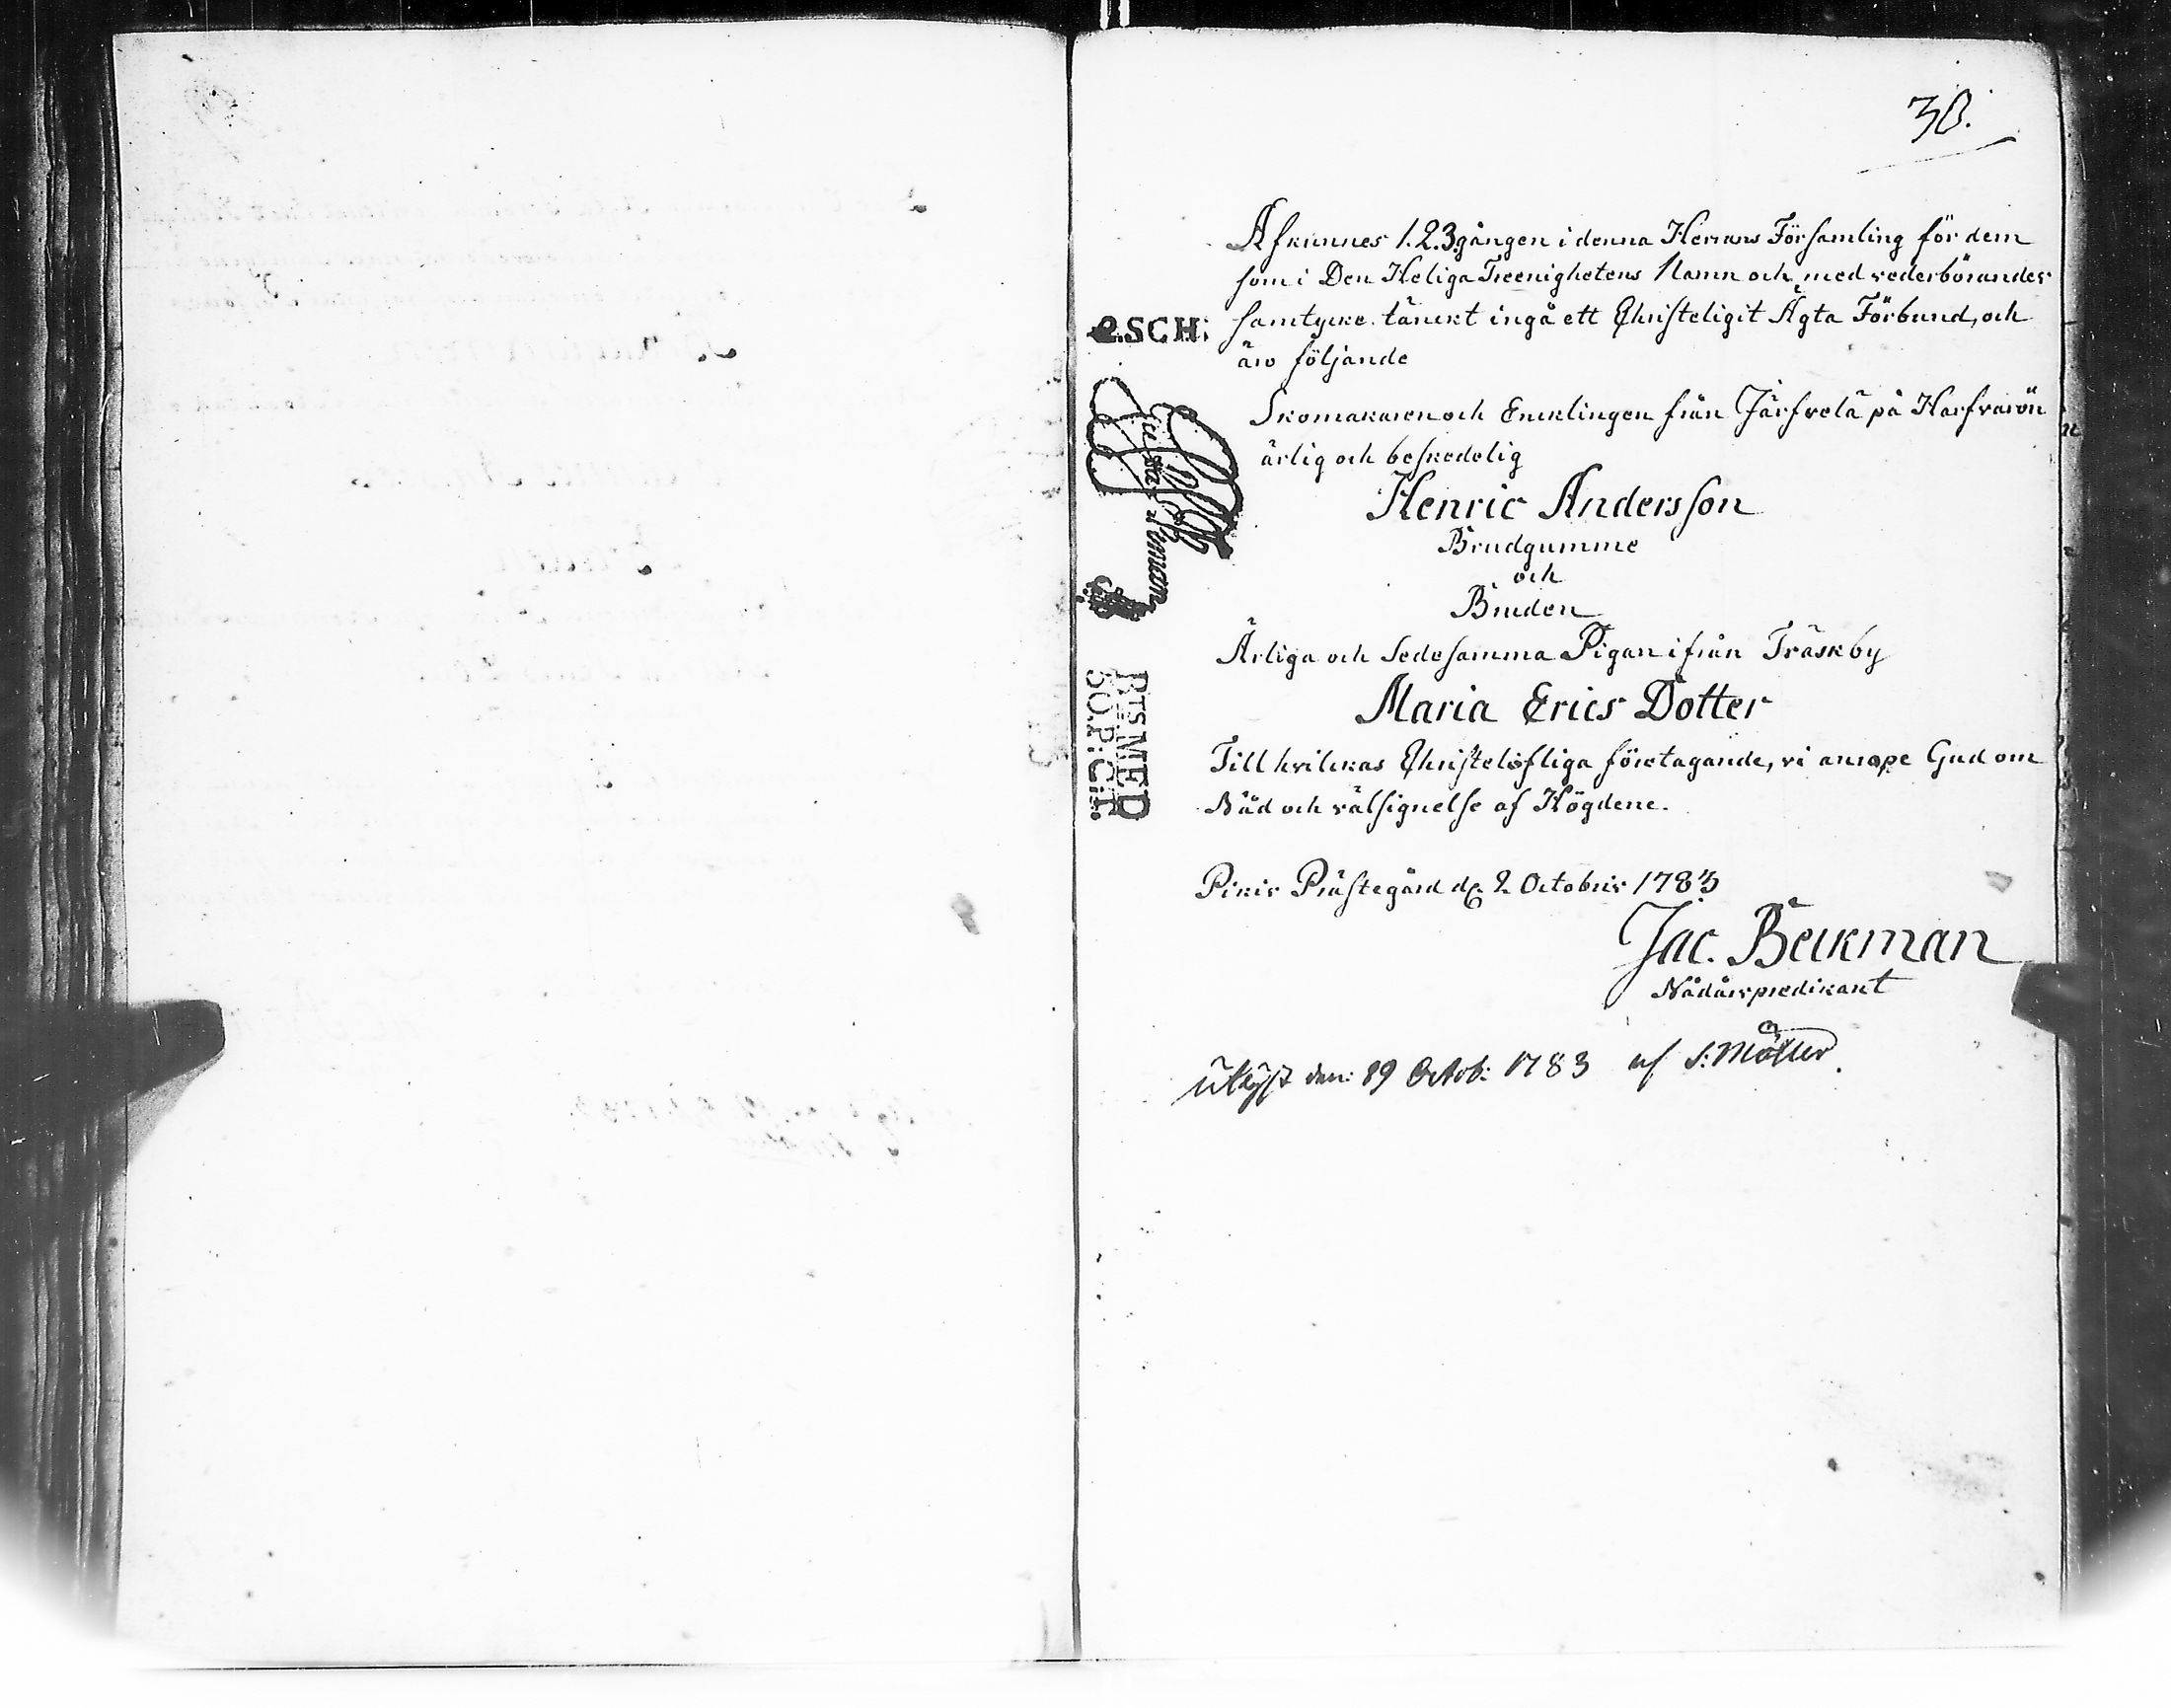 38.
Afkunnes 1.2.3 gången i denna Herrans Församling för dem
som i Den Heliga Treenighetens Namn och med vederbörandes
samtycke tänckt ingå ett Christeligit Ägta Förbund, och
äro följande
Skomakaren och Encklingen från Järfvelä på Harfvarön
ärlig och beskedelig
Henric Andersson
Brudgumme
och
Bruden
Ärliga och Sedesamma Pigan ifrån Träskby
Maria Erics Dotter
Till hvilckas Christelofliga företagande, vi anrope Gud om
Nåd och välsignelse af Högdene.
Pikis Prästegård d. 2 Octobris 1783
Jac. Beckman
Nådårspredikant
Utlyst den: 19 Octob: 1783 af S: Möller
2.SCH:
BTS.MED
SO.P:Cit.